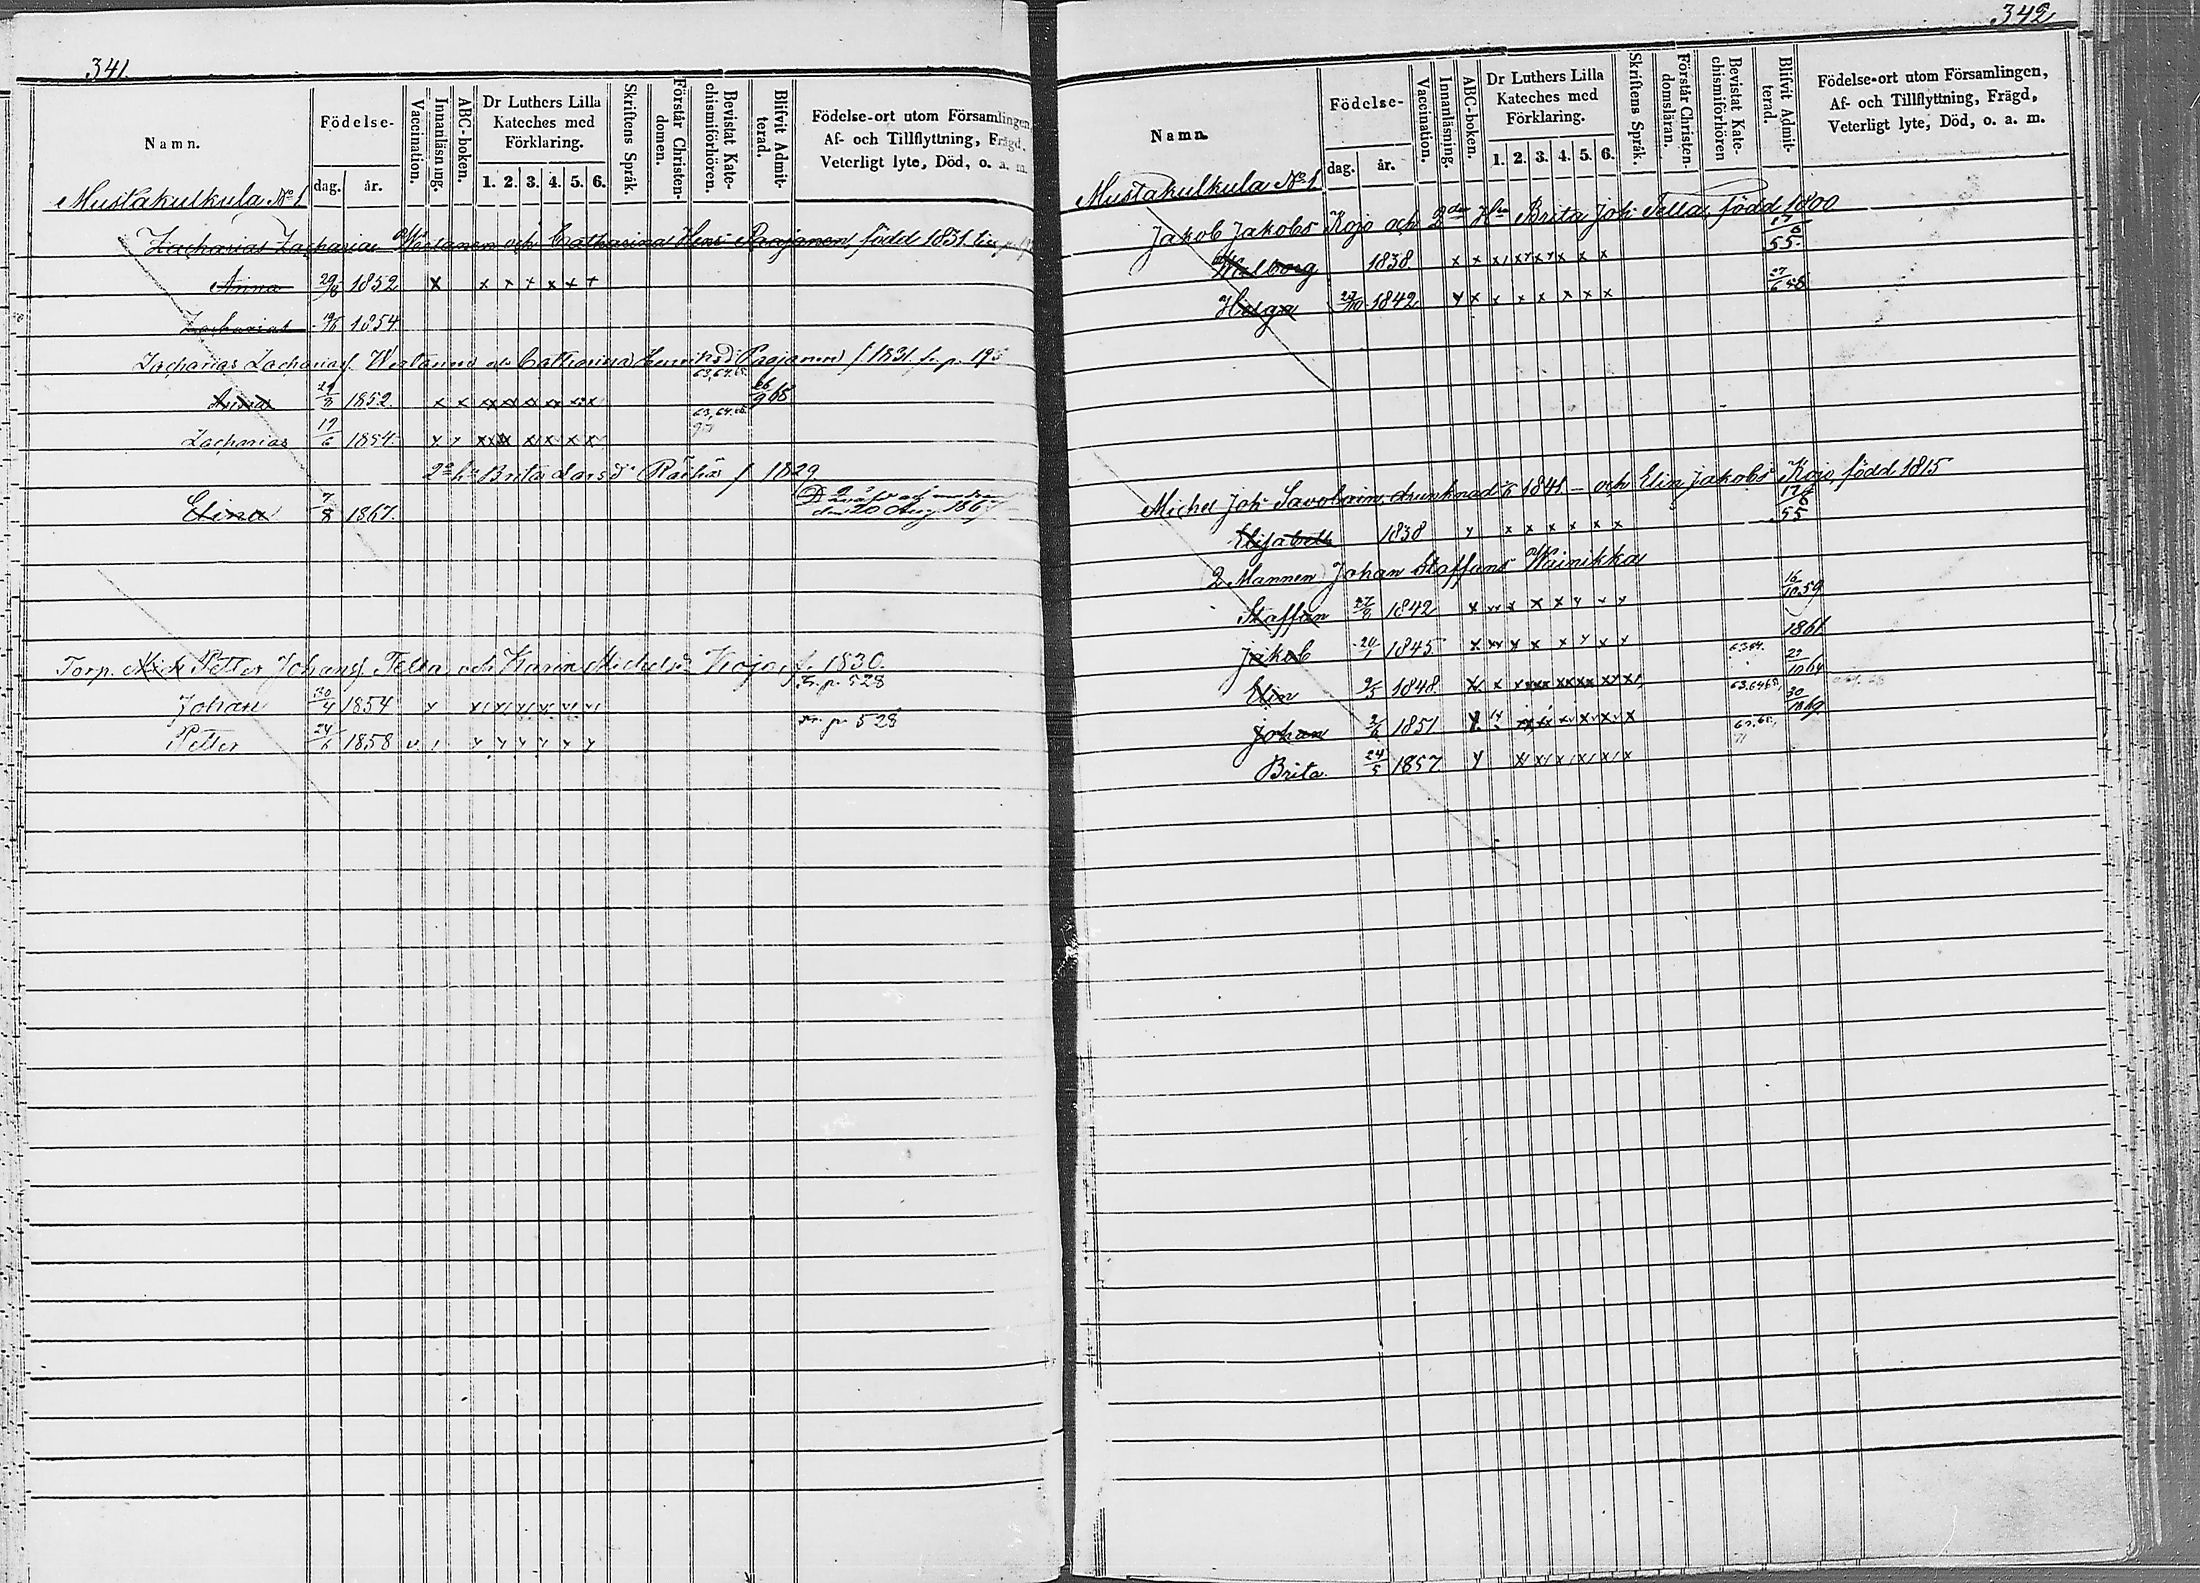 341.
Namn.
Födelse-
dag. år.
Vaccination.
Innanläsning.
ABC-boken.
Dr Luthers Lilla
Kateches med
Förklaring.
1. 2. 3. 4. 5. 6.
Skriftens Språk.
Förstår Christen-
domen.
Bevistat Kate-
chismiförhören.
Blifvit Admit-
terad.
Födelse-ort utom Församlingen,
Af- och Tillflyttning, Frägd,
Veterligt lyte, Död, o. a. m.
Mustakulkula No 1
Zacharias Zacharias Wirolanen och Catharina Hens Paajanen, född 1831.
Anna 29/8 1852 x x x + x + +
Zacharias 19/6 1854
Zacharias Zachariasf. och Catharina Henriksd. Paajanen f. 1831. p. 195
63,64.65.
Anna 29/8 1852. 26/9 68
63,64.65.
Zacharias 19/6 1854.
2a h. Brita Larsd. Räihä f 1829
Elina 7/8 1867. D
den 20 Aug 1867
Torp. Petter Johansf. Tella och Karin Michelsd. Kojo, f. 1830.
Tr. p. 528
Johan 30/4 1854
Tr. p. 528
Petter 24/6 1858
342
Namn.
Födelse-
dag. år.
Vaccination.
Innanläsning.
ABC-boken.
Dr Luthers Lilla
Kateches med
Förklaring.
1. 2. 3. 4. 5. 6.
Skriftens Språk.
Förstår Christen-
domsläran.
Bevistat Kate-
chismiförhören
Blifvit Admit-
terad.
Födelse-ort utom Församlingen,
Af- och Tillflyttning, Frägd,
Veterligt lyte, Död, o. a. m.
Mustakulkula No 1
Jakob Jakobs Kojo och 2dra Hu Brita Joh. Tella, född 1800
Walborg 1838 x x 17/6 55.
Helga 27/10 1842 27/6 58
Michel Joh. Savolain, drunknad 1841. – och Elin Jakobs Kojo, född 1815
Elisabeth 1838 x x x x x x 17/6 55
2 Mannen Johan Staffans Wäinikka
Staffan 27/8 1842 16/10 59
Jakob 20/1 1845 1861
Elin 9/5 1848. 63.64 65, 29/10 64
Johan 2/6 1851 30/10 69
Brita. 24/5 1857